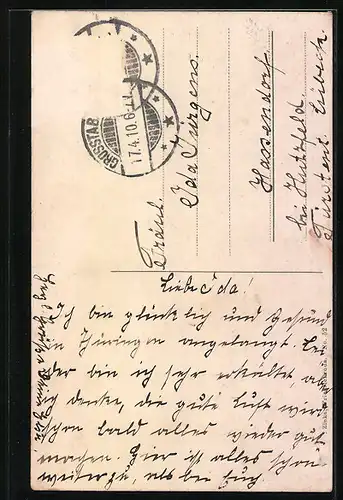 GROSSTAB
17.4.10.6-7V.
Fräul.
Ida Jurgens.
Hassendorf.
bei Hutzfeld.
Fürstent. Lübeck.
Liebe Ida!
Ich bin glücklich und gesund
in Thüringen angelangt. Lei
der bin ich sehr erkältet aber
ich denke, die gute Luft wird
schon bald alles wieder gut
machen. Hier ist alles schon
weiter, als bei Euch.